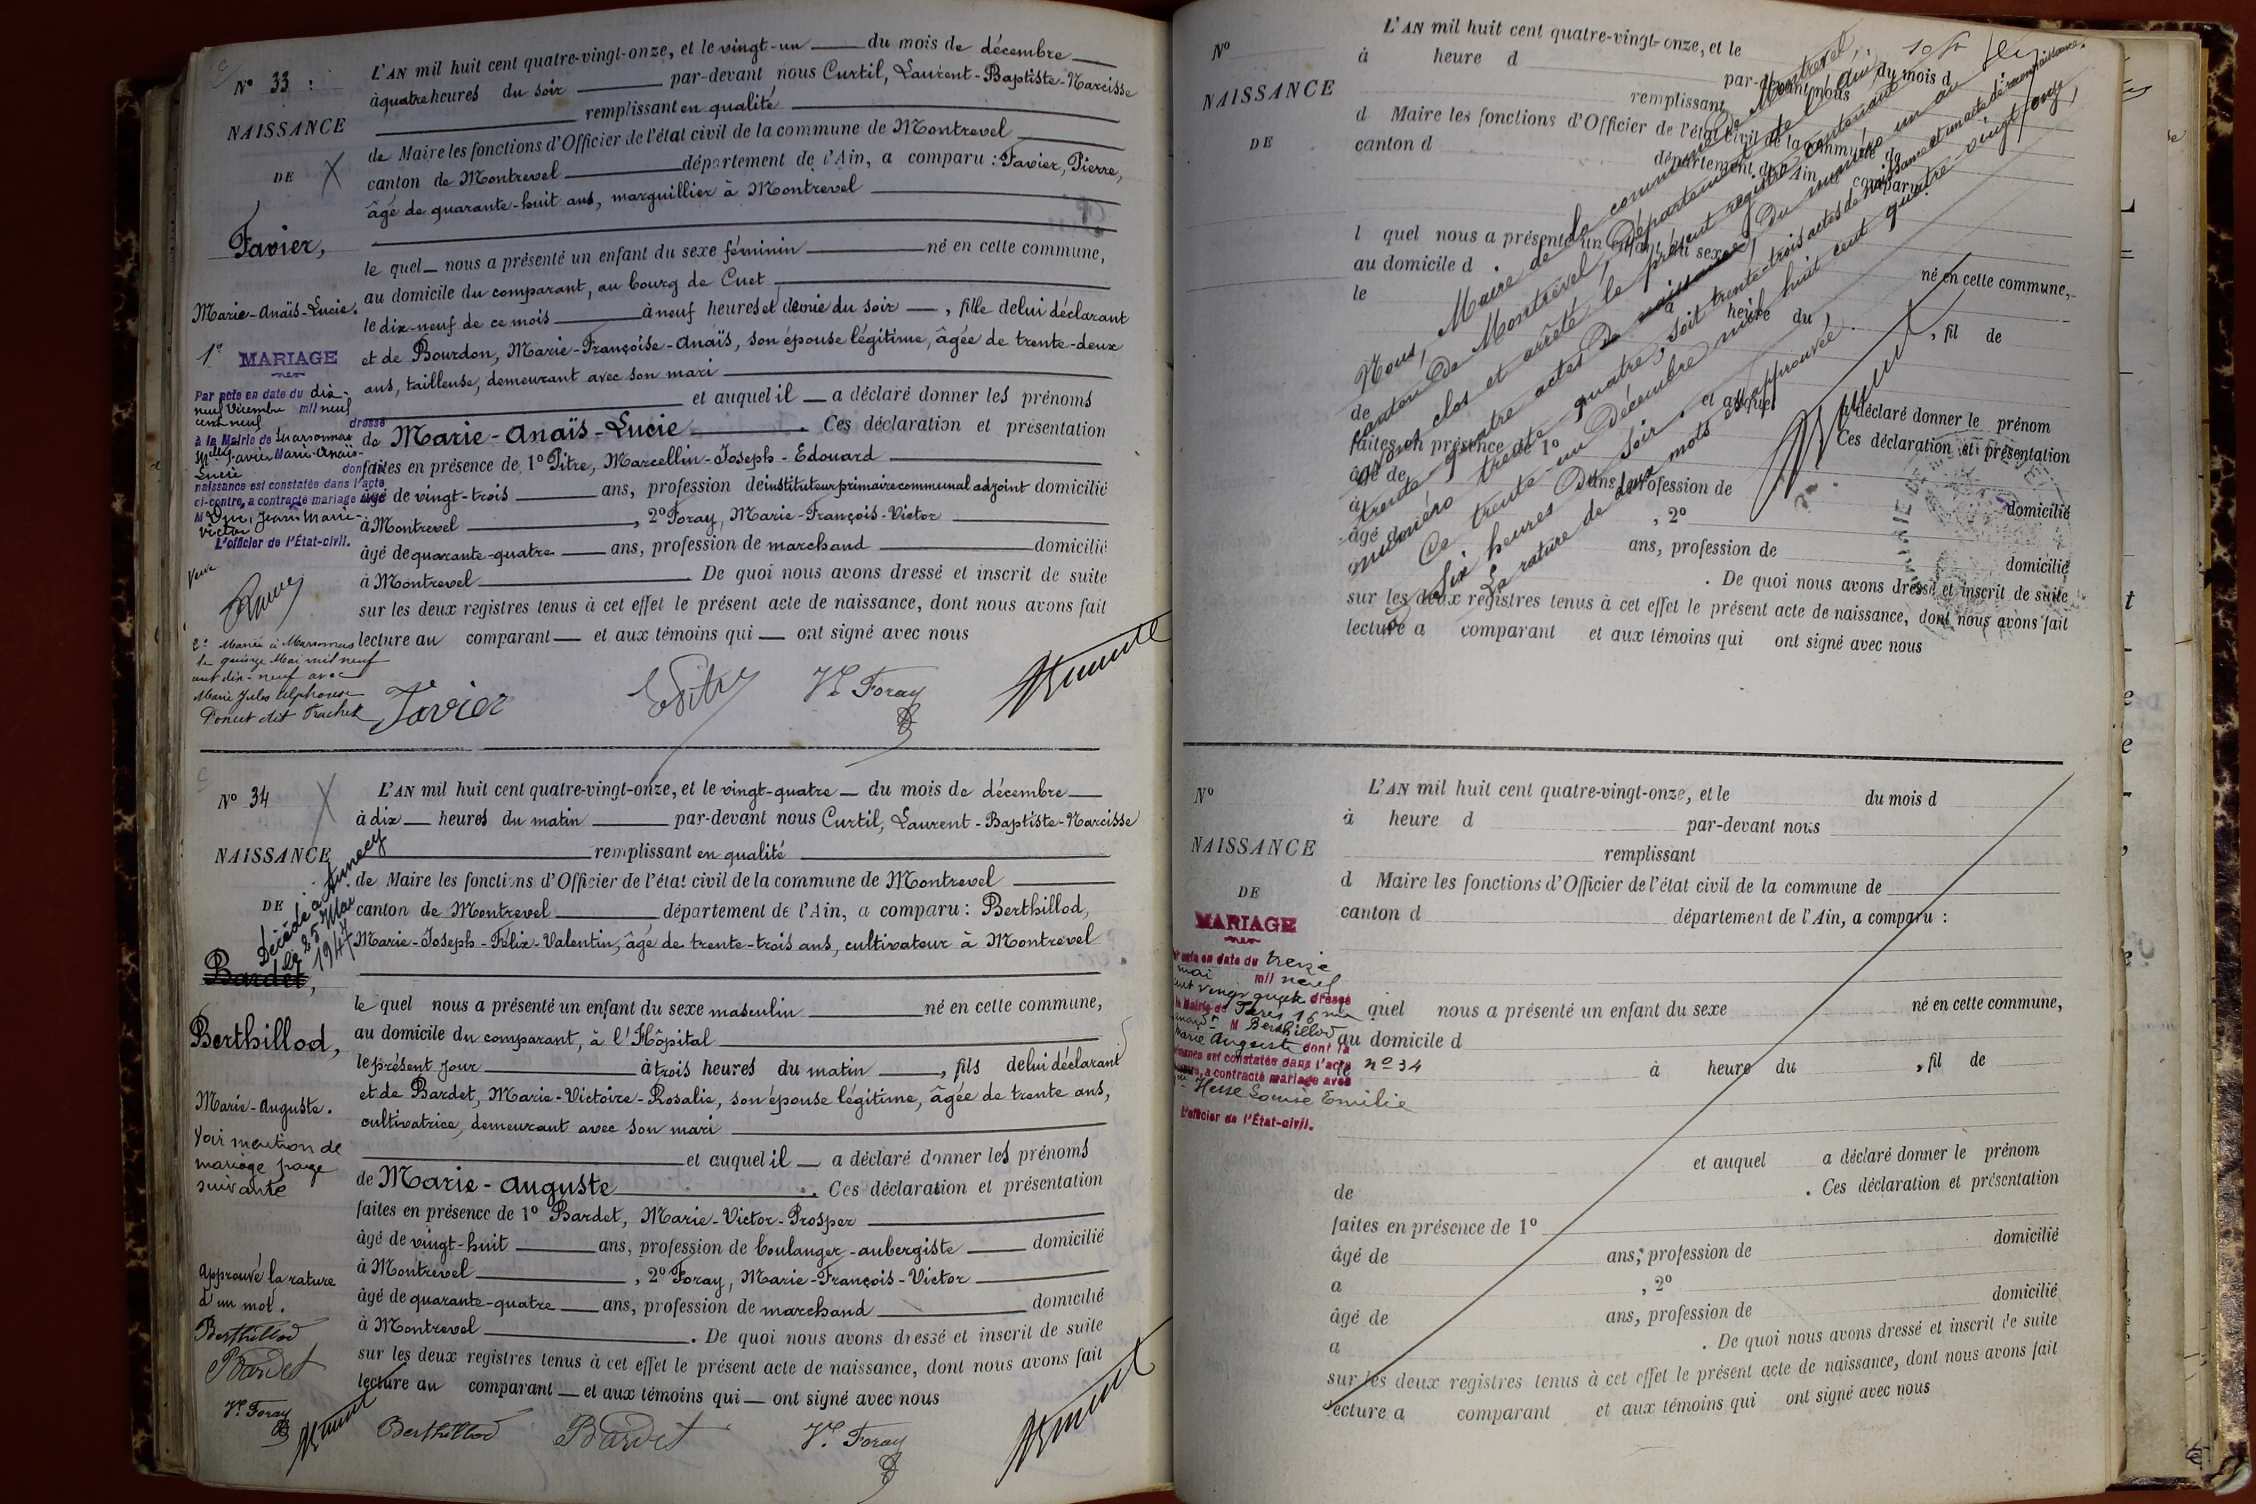 L'AN mil huit cent quatre-vingt-onze, et le vingt-un du mois de décembre
N° 33 :
à quatre heures du soir par-devant nous Curtil, Laurent-Baptiste-Narcisse
remplissant en qualité
NAISSANCE
de Maire les fonctions d'Officier de l'état civil de la commune de Montrevel
DE
canton de Montrevel département de l'Ain, a comparu : Favier, Pierre,
âgé de quarante-huit ans, marguillier à Montrevel
Favier,
le quel nous a présenté un enfant du sexe féminin né en cette commune,
au domicile du comparant, au bourg de Cuet
Marie-Anaïs-Lucie.
le dix-neuf de ce mois à neuf heures et demie du soir, fille de lui déclarant
et de Bourdon, Marie-Françoise-Anaïs, son épouse légitime, âgée de trente-deux
ans, tailleuse, demeurant avec son mari
et auquel il a déclaré donner les prénoms
de Marie-Anaïs-Lucie. Ces déclaration et présentation
faites en présence de 1° Pitre, Marcellin-Joseph-Edouard
âgé de vingt-trois ans, profession de instituteur primaire communal adjoint domicilié
à Montrevel, 2° Foray, Marie-François-Victor
âgé de quarante-quatre ans, profession de marchand domicilié
à Montrevel. De quoi nous avons dressé et inscrit de suite
sur les deux registres tenus à cet effet le présent acte de naissance, dont nous avons fait
lecture au comparant et aux témoins qui ont signé avec nous
1° MARIAGE
Par acte en date du dix-
neuf Décembre mil neuf
cent neuf dressé
à la Mairie de Marsonnas
Mlle Favier Marie-Anaïs-
Lucie dont la
naissance est constatée dans l'acte
ci-contre, a contracté mariage avec
M Duc, Jean Marie-
Victor
L'officier de l'État-civil.
2° Mariée à Marsonnas
le quinze Mai mil neuf
cent dix-neuf avec
Marie Jules Alphonse
Donut dit Trachet
Favier
E Pitre
Vr Foray
N° 34
L'AN mil huit cent quatre-vingt-onze, et le vingt-quatre du mois de décembre
à dix heures du matin par-devant nous Curtil, Laurent-Baptiste-Narcisse
NAISSANCE
remplissant en qualité
de Maire les fonctions d'Officier de l'état civil de la commune de Montrevel
DE
canton de Montrevel département de l'Ain, a comparu : Berthillod,
Marie-Joseph-Félix-Valentin, âgé de trente-trois ans, cultivateur à Montrevel
Décédé à Annecy
le 25 Mai
1947
Bardet,
le quel nous a présenté un enfant du sexe masculin né en cette commune,
Berthillod,
au domicile du comparant, à l'Hôpital
le présent jour à trois heures du matin, fils de lui déclarant
et de Bardet, Marie-Victoire-Rosalie, son épouse légitime, âgée de trente ans,
Marie-Auguste.
cultivatrice, demeurant avec son mari
Voir mention de
mariage page
suivante
et auquel il a déclaré donner les prénoms
de Marie-Auguste. Ces déclaration et présentation
faites en présence de 1° Bardet, Marie-Victor-Prosper
âgé de vingt-huit ans, profession de boulanger-aubergiste domicilié
à Montrevel, 2° Foray, Marie-François-Victor
âgé de quarante-quatre ans, profession de marchand domicilié
à Montrevel. De quoi nous avons dressé et inscrit de suite
sur les deux registres tenus à cet effet le présent acte de naissance, dont nous avons fait
lecture au comparant et aux témoins qui ont signé avec nous
Approuvé la rature
d'un mot.
Berthillod
Bardet
Vr Foray
Berthillod Bardet Vr Foray
N°
L'AN mil huit cent quatre-vingt-onze, et le du mois d
à heure d par-devant nous
NAISSANCE
remplissant
d Maire les fonctions d'Officier de l'état civil de la commune de
DE
canton d département de l'Ain, a comparu
l quel nous a présenté un enfant du sexe né en cette commune,
au domicile d
le à heure du, fil de
et auquel a déclaré donner le prénom
de Ces déclaration et présentation
faites en présence de 1°
âgé de ans, profession de domicilié
à, 2°
âgé de ans, profession de domicilié
à. De quoi nous avons dressé et inscrit de suite
sur les deux registres tenus à cet effet le présent acte de naissance, dont nous avons fait
lecture a comparant et aux témoins qui ont signé avec nous
Nous, Maire de la commune de Montrevel,
canton de Montrevel, Département de l'Ain,
avons clos et arrêté le présent registre contenant
trente quatre actes de naissance, du numéro un au
numéro trente quatre, soit trente-trois actes de naissance et un acte de reconnaissance.
Ce trente-un Décembre mil huit cent quatre-vingt-onze,
à six heures du soir.
La rature de deux mots est approuvée
N°
L'AN mil huit cent quatre-vingt-onze, et le du mois d
à heure d par-devant nous
NAISSANCE
remplissant
d Maire les fonctions d'Officier de l'état civil de la commune de
DE
canton d département de l'Ain, a comparu :
MARIAGE
acte en date du treize
mai mil neuf
cent vingt quatre dressé
la Mairie de Paris 16
M Berthillod
Marie Auguste dont la
naissance est constatée dans l'acte n° 34
a contracté mariage avec
Hesse Louise Emilie
L'officier de l'État-civil.
quel nous a présenté un enfant du sexe né en cette commune,
au domicile d
à heure du, fil de
et auquel a déclaré donner le prénom
de. Ces déclaration et présentation
faites en présence de 1°
âgé de ans, profession de domicilié
a, 2°
âgé de ans, profession de domicilié
a. De quoi nous avons dressé et inscrit de suite
sur les deux registres tenus à cet effet le présent acte de naissance, dont nous avons fait
lecture a comparant et aux témoins qui ont signé avec nous